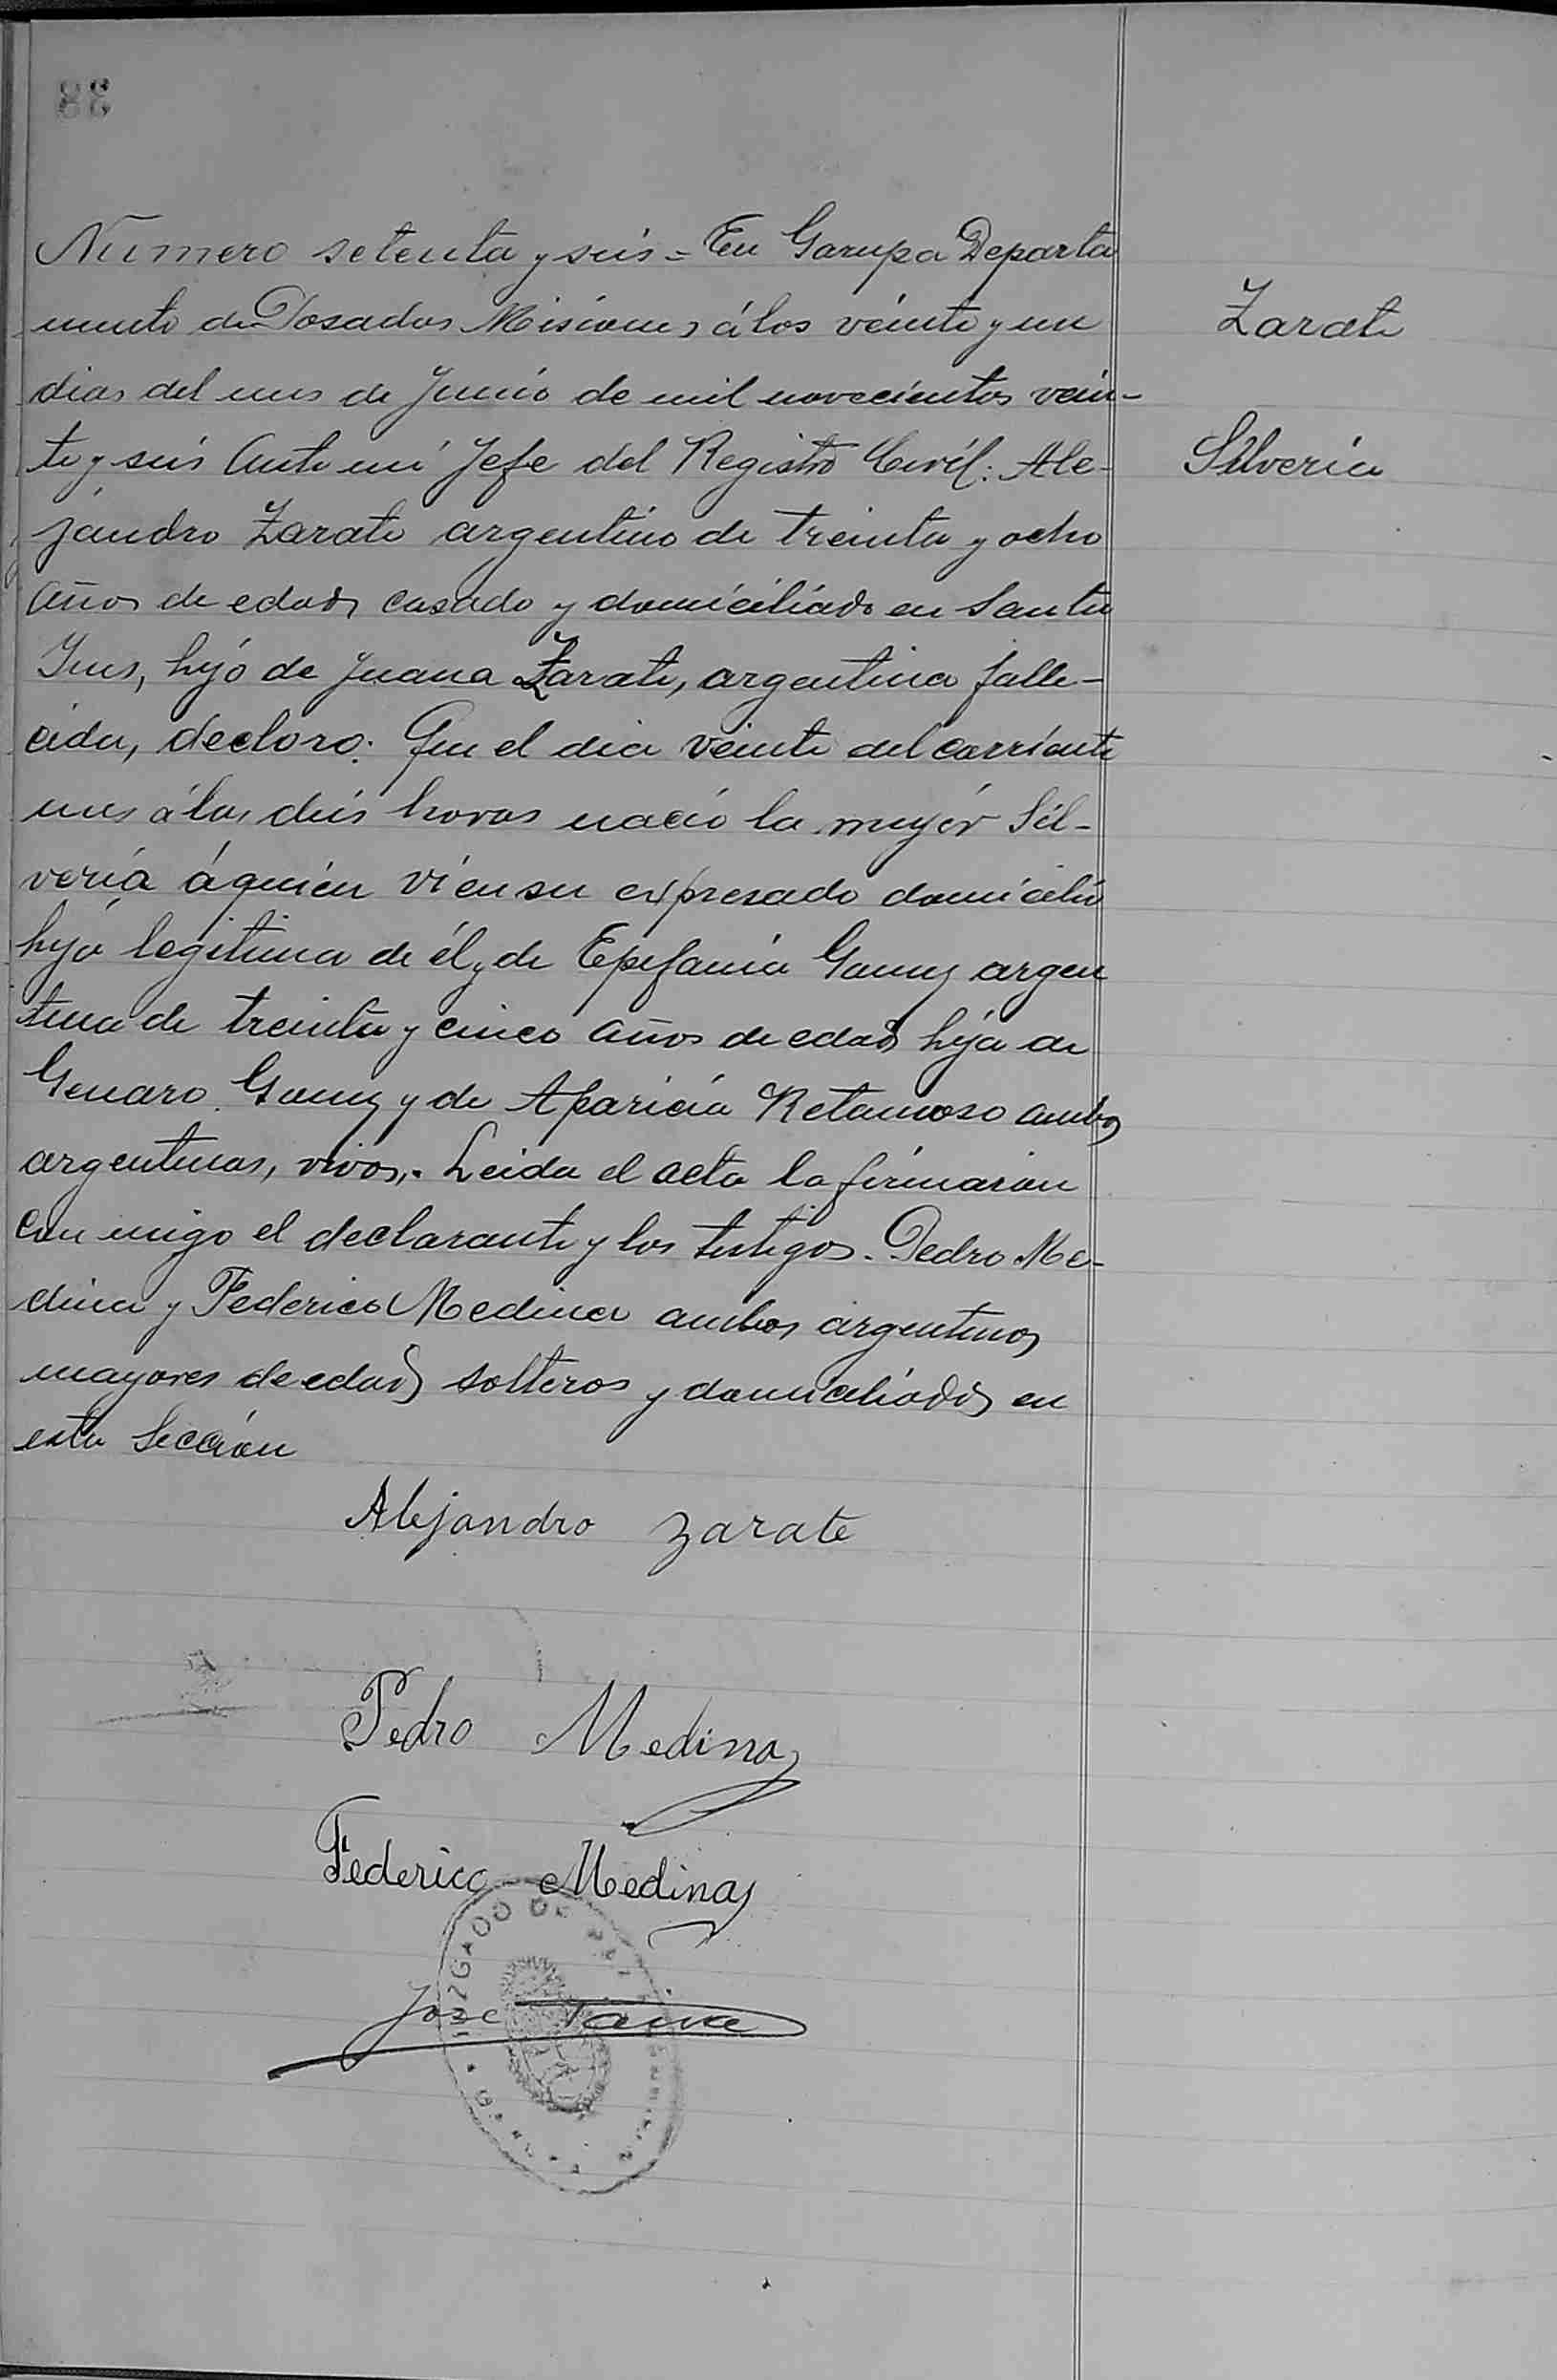 38
Numero setenta y seis = En Garupa Departa
mento de Posadas Misiones á los veinte y un
dias del mes de Junio de mil novecientos vein-
te y seis Ante mi Jefe del Registro Civil: Ale-
jandro Zarate argentino de treinta y ocho
años de edad, casado y domiciliado en Santa
Ines, hijo de Juana Zarate, argentina falle-
cida, declaro: Que el dia veinte del corriente
mes á las diés horas nació la mujer Sil-
veria á quien vi en su expresado domicilio
hija legitima de él y de Epifania Gomez argen
tina de treinta y cinco años de edad hija de
Genaro Gomez y de Aparicia Retamoso ambos
argentinos, vivos,. Leida el acta la firmaron
con migo el declarante y los testigos. Pedro Me-
dina y Federico Medina ambos argentinos
mayores de edad, solteros y domiciliados en
esta Sección
Zarate
Silveria
Alejandro Zarate
Pedro Medina
Federico Medina
Jose Paiva
JUZGADO DE PAZ